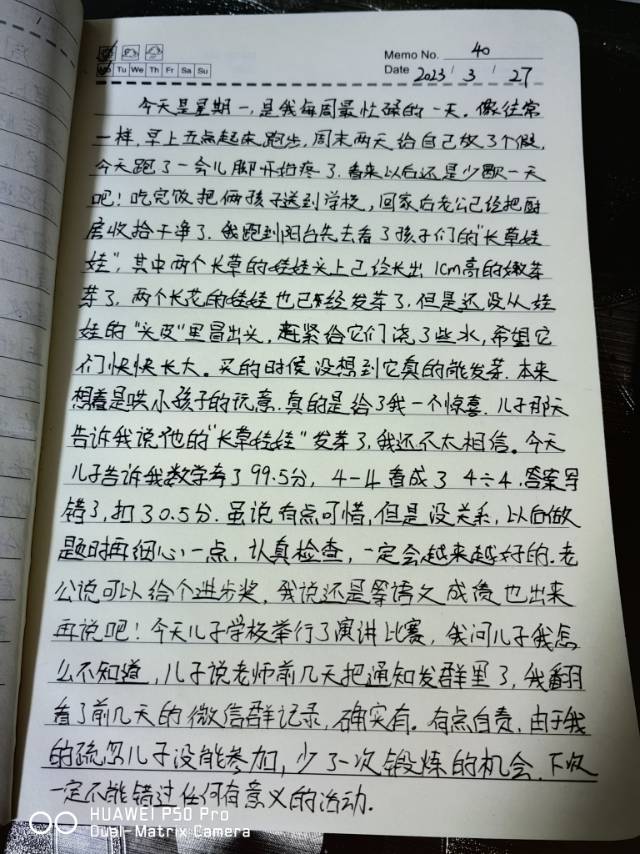 Memo No. 40
Mo Tu We Th Fr Sa Su
Date 2023 / 3 / 27
今天是星期一,是我每周最忙碌的一天。像往常
一样,早上五点起来跑步,周末两天给自己放了个假,
今天跑了一会儿脚开始疼了,看来以后还是少歇一天
吧!吃完饭把俩孩子送到学校,回家后老公已经把厨
房收拾干净了,我跑到阳台先去看了孩子们的“长草娃
娃”,其中两个长草的娃娃头上已经长出1cm高的嫩芽
芽了,两个长花的娃娃也已经发芽了,但是还没从娃
娃的“头皮”里冒出头,赶紧给它们浇了些水,希望它
们快快长大。买的时候没想到它真的能发芽,本来
想着是哄小孩子的玩意,真的是给了我一个惊喜,儿子那天
告诉我说他的“长草娃娃”发芽了,我还不太相信。今天
儿子告诉我数学考了99.5分,4-4看成了4÷4,答案写
错了,扣了0.5分.虽说有点可惜,但是没关系,以后做
题时再细心一点,认真检查,一定会越来越好的.老
公说可以给个进步奖,我说还是等语文成绩也出来
再说吧!今天儿子学校举行了演讲比赛,我问儿子我怎
么不知道,儿子说老师前几天把通知发群里了,我翻
看了前几天的微信群记录,确实有。有点自责,由于我
的疏忽儿子没能参加,少了一次锻炼的机会,下次
一定不能错过任何有意义的活动.
HUAWEI P50 Pro
Dual-Matrix Camera